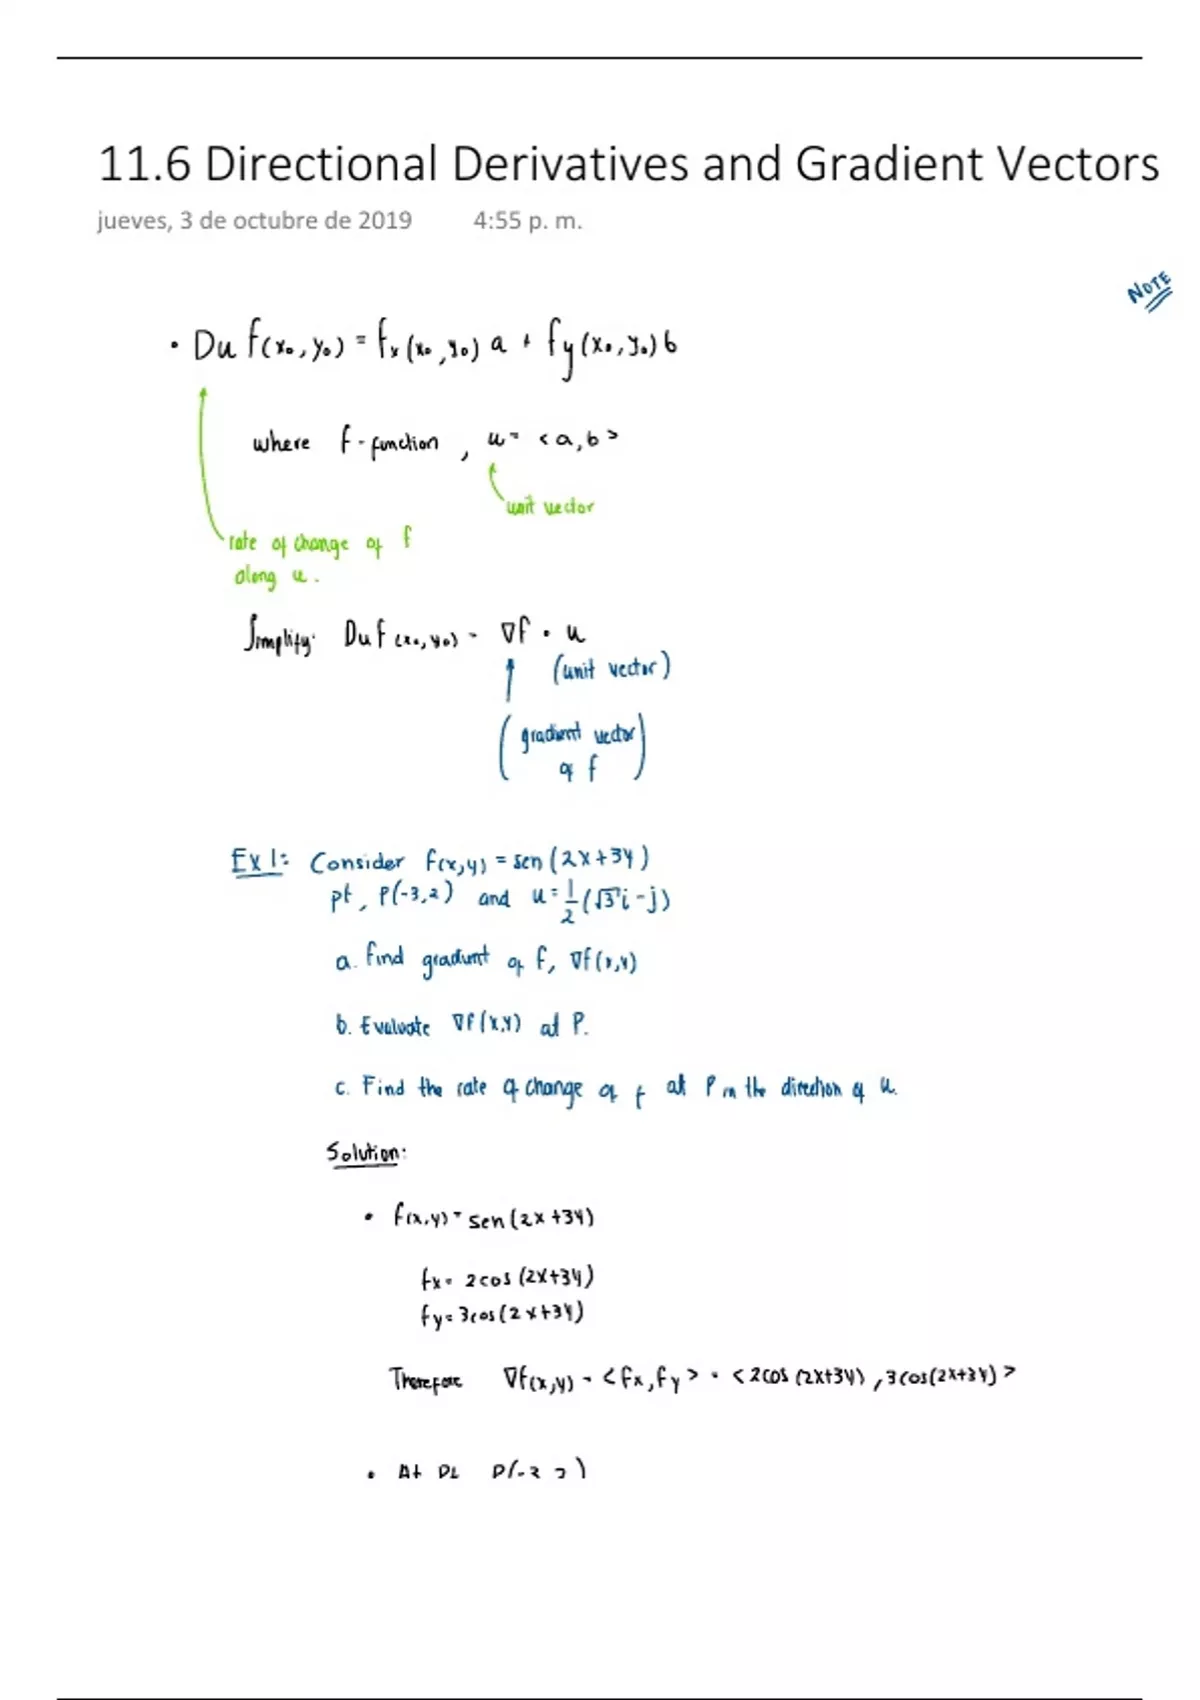 11.6 Directional Derivatives and Gradient Vectors
jueves, 3 de octubre de 2019 4:55 p. m.
NOTE
• Du f(x₀, y₀) = fx (x₀, y₀) a + fy (x₀, y₀) b
where f-function, u = <a, b>
unit vector
rate of change of f
along u.
Simplify: Du f(x₀, y₀) = ∇f • u
(unit vector)
(gradient vector
of f)
Ex 1: Consider f(x,y) = sen (2x+3y)
pt, P(-3,2) and u = 1/2 (√3 i - j)
a. Find gradient of f, ∇f(x,y)
b. Evaluate ∇f(x,y) at P.
c. Find the rate of change of f at P in the direction of u.
Solution:
• f(x,y) = sen (2x+3y)
fx = 2cos (2x+3y)
fy = 3cos (2x+3y)
Therefore ∇f(x,y) = <fx, fy> = <2cos (2x+3y), 3cos(2x+3y)>
• At pt P(-3 2)